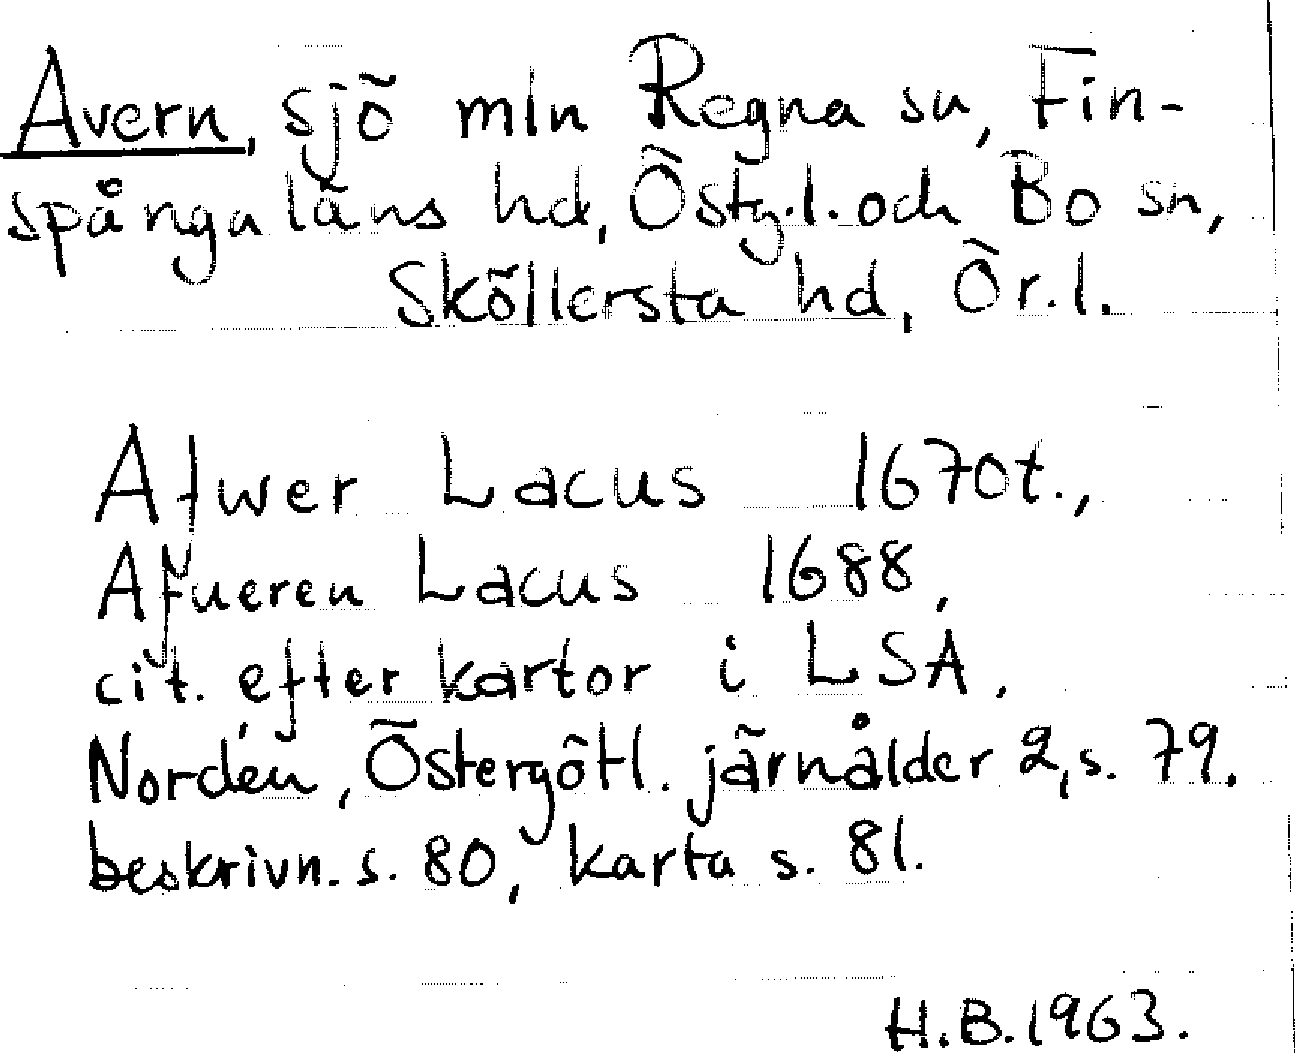 Avern, sjö mln Regna sn, Fin-
spånga läns hd, Östg.l. och Bo sn,
Sköllersta hd, Ör.l.
Afwer Lacus 1670t.,
Afueren Lacus 1688,
cit. efter kartor i LSA.
Nordén, Östergötl. järnålder 2, s. 79.
beskrivn. s. 80, karta s. 81.
H.B. 1963.